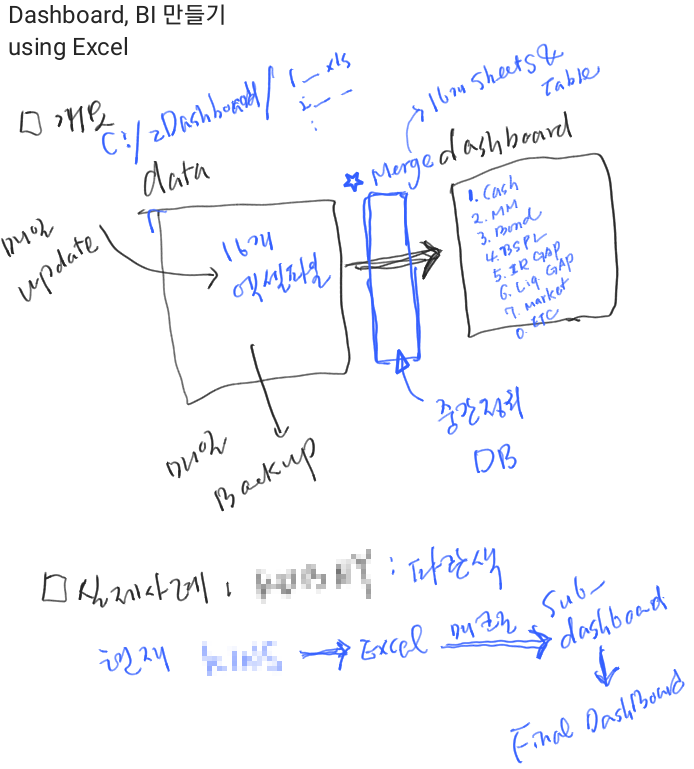 Dashboard, BI 만들기
using Excel
□ 개요
C:/zDashboard/ 1_ xls
2_ _
:
→ 16개 Sheets &
Table
data
☆ Merge
dashboard
매일
update
16개
엑셀파일
1. Cash
2. MM
3. Bond
4. BSPL
5. IR GAP
6. Liq GAP
7. Market
0. ETC
매일
Backup
중간정리
DB
□ 실제사례 : : 파란색
현재 → Excel → Sub-
dashboard
Final DashBoard